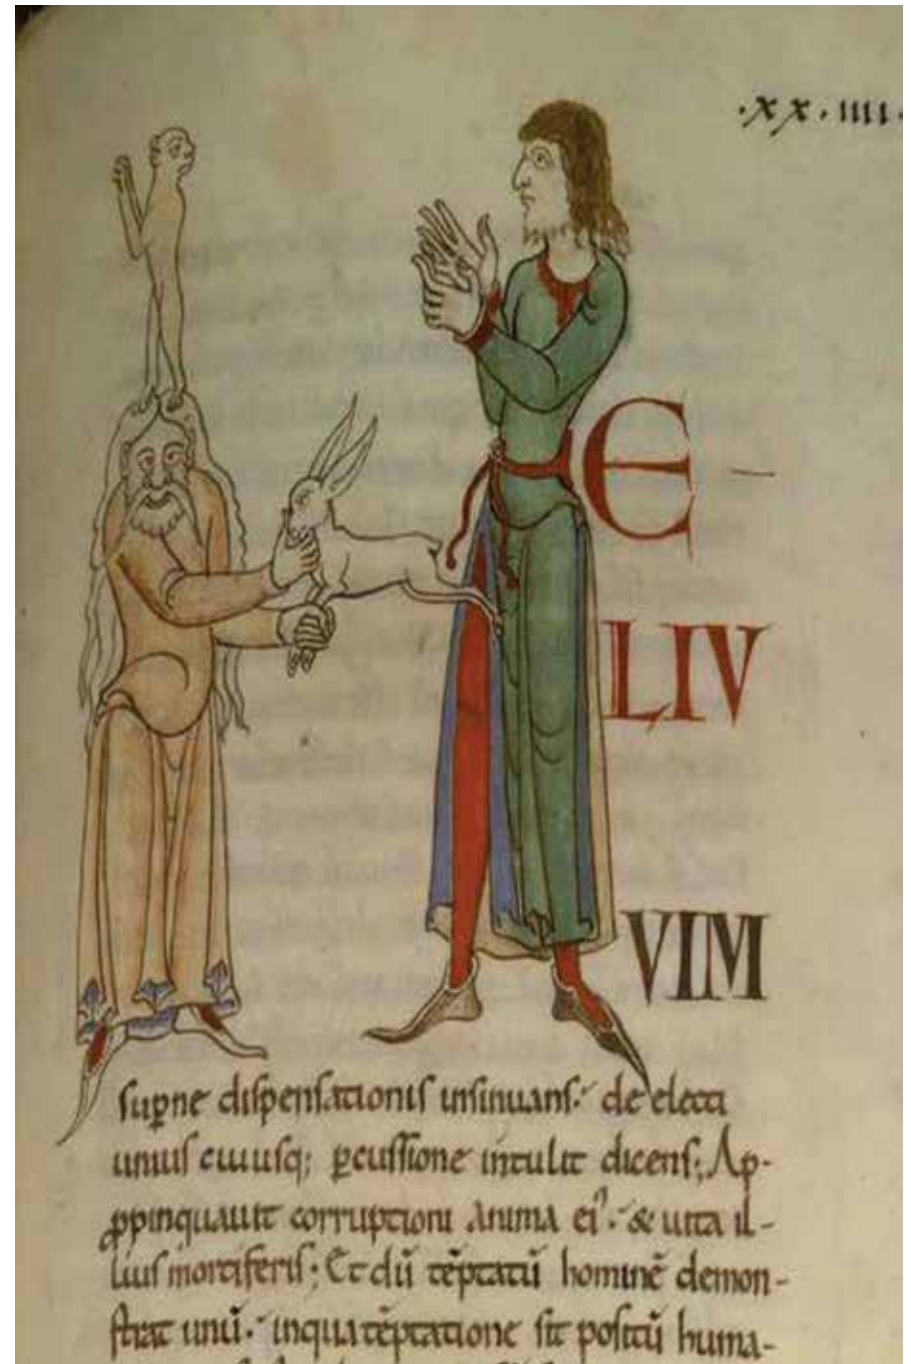 ·xx·iiii·
E
LIV
VIM
sup̱ne dispensationis insinuans·' de electi
unius cuiusq; ꝑcussione intulit dicens; Ap-
ꝓpinquauit corruptioni anima ei᾿·' & uita il-
lius mortiferis; Et dū tēptatū hominē demon-
strat unū·' in qua tēptatione sit positū huma-